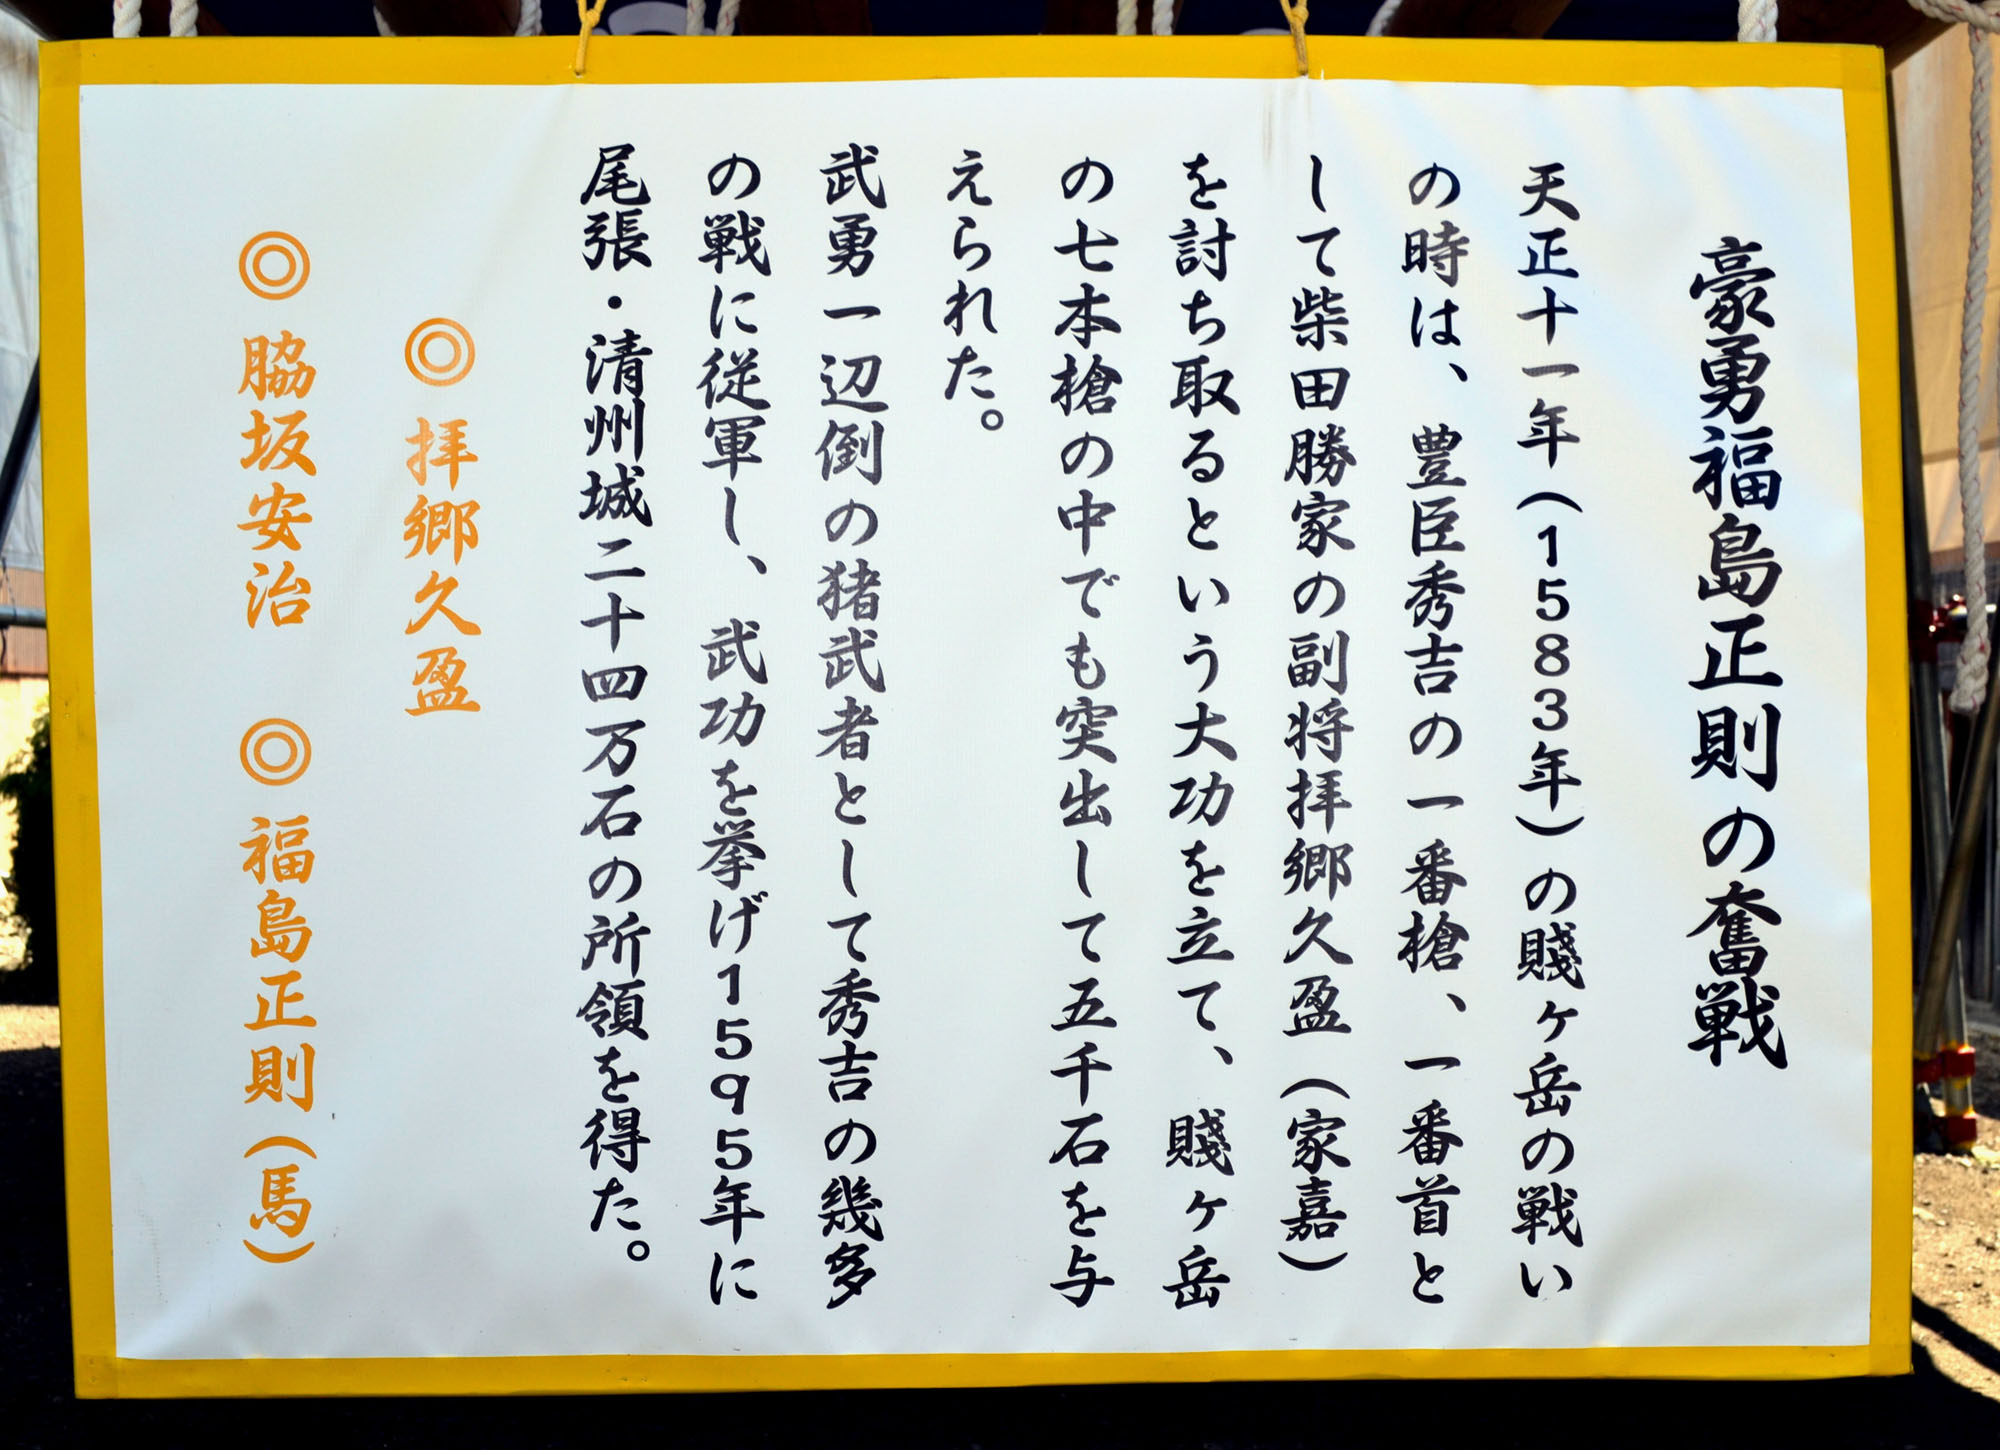 豪勇福島正則の奮戦
天正十一年（1583年）の賤ヶ岳の戦い
の時は、豊臣秀吉の一番槍、一番首と
して柴田勝家の副将拝郷久盈（家嘉）
を討ち取るという大功を立て、賤ヶ岳
の七本槍の中でも突出して五千石を与
えられた。
武勇一辺倒の猪武者として秀吉の幾多
の戦に従軍し、武功を挙げ1595年に
尾張・清州城二十四万石の所領を得た。
◎拝郷久盈
◎脇坂安治　◎福島正則（馬）